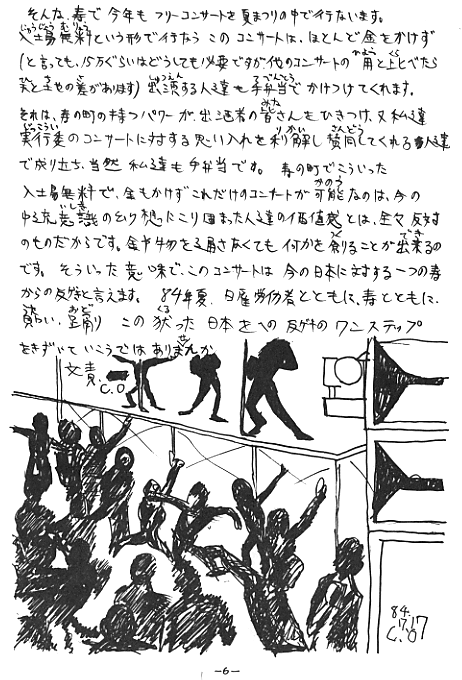 そんな、寿で今年もフリーコンサートを夏まつりの中で行ないます。
入場無料という形で行なうこのコンサートは、ほとんど金をかけず
(と言っても、15万ぐらいはどうしても必要ですが他のコンサートの費用と比べたら
の差があります) 出演する人達も手弁当でかけつけてくれます。
それは、寿の町の持つパワーが、出演者の皆さんをひきつけ、又私達
実行委のコンサートに対する思い入れを利解し賛同してくれる人達
で成り立ち、当然 私達も手弁当です。 寿の町でこういった
入場無料で、金もかけずこれだけのコンサートが可能なのは、今の
中流意識の幻想にこり固まった人達の価値感とは、全々反対
のものだからです。金や物を通さなくても何かを創ることが出来るの
です。そういった意味で、このコンサートは今の日本に対する一つの寿
からの反撃と言えます。 84年夏、日雇労働者とともに、寿とともに、
歌い、踊り この狂った日本への反撃のワンステップ
をきずいていこうではありませんか
文責 C.O
84.
7.17
C.O
—6—